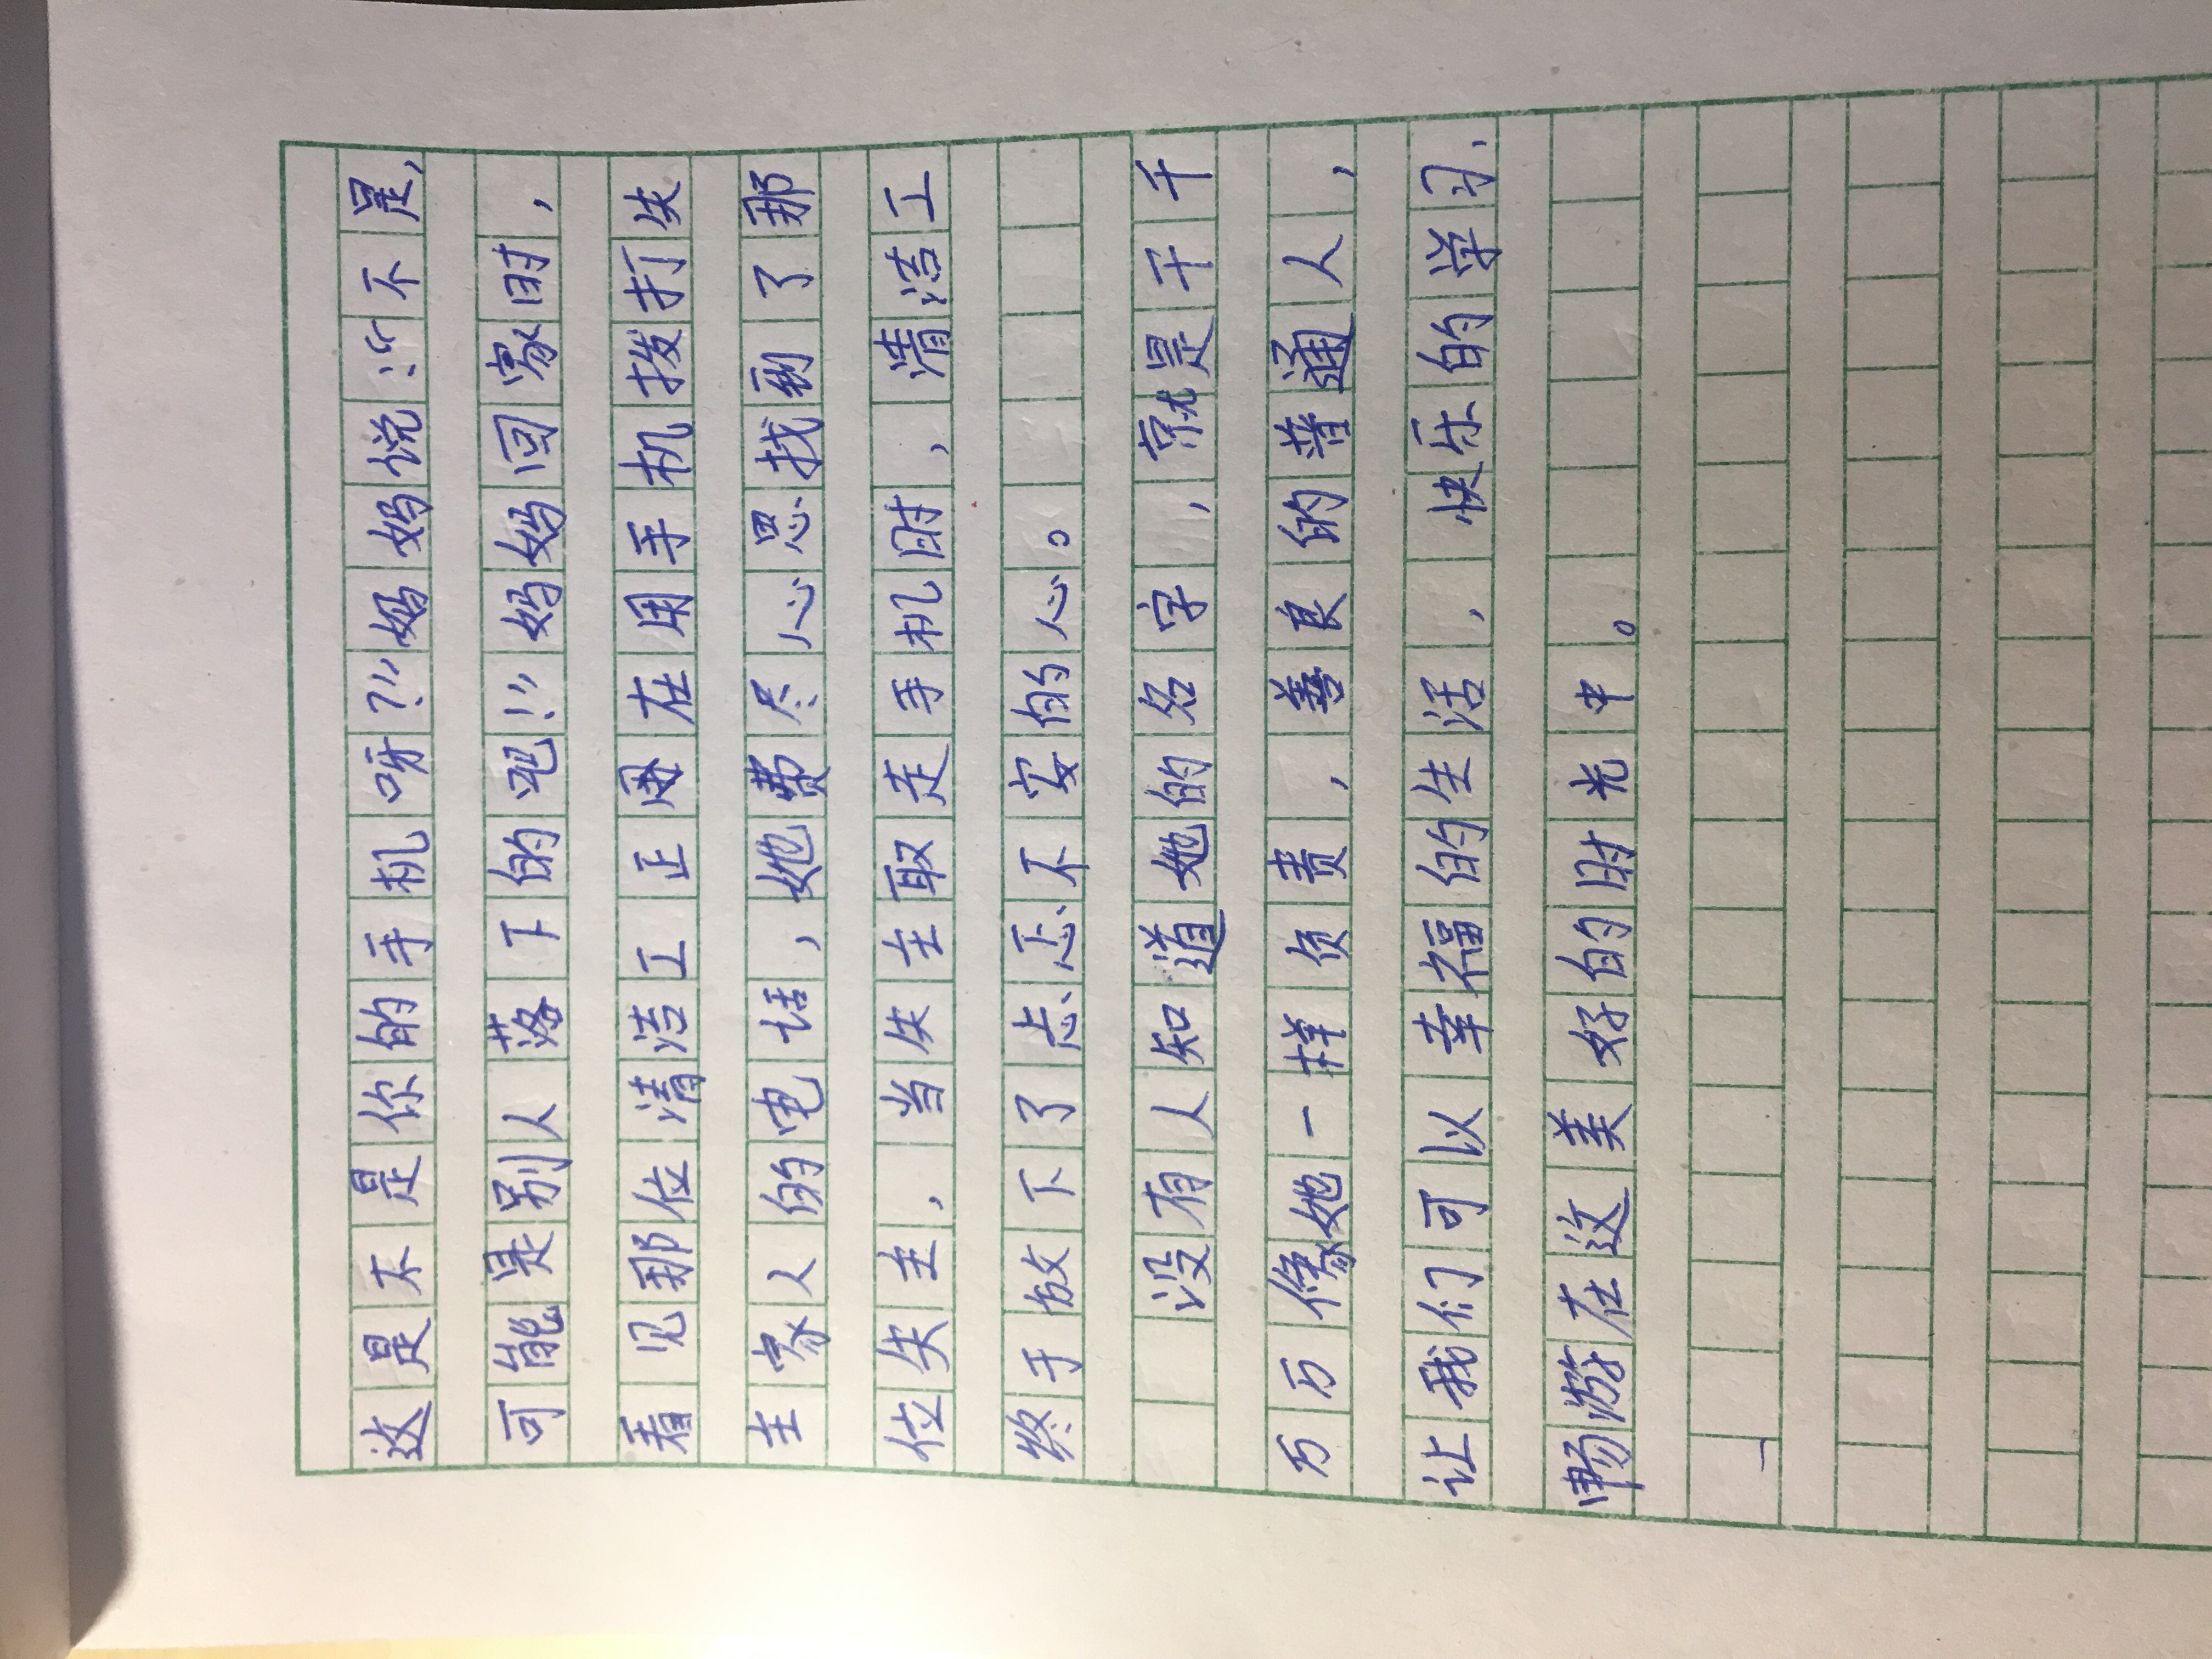 这是不是你的手机呀?!”妈妈说:“不是,
可能是别人落下的吧!”妈妈回家时,
看见那位清洁工正在用手机拨打失
主家人的电话,她费尽心思找到了那
位失主,当失主取走手机时,清洁工
终于放下了忐忑不安的心。
没有人知道她的名字,就是千千
万万像她一样负责,善良的普通人,
让我们可以幸福的生活,快乐的学习.
畅游在这美好的时光中。